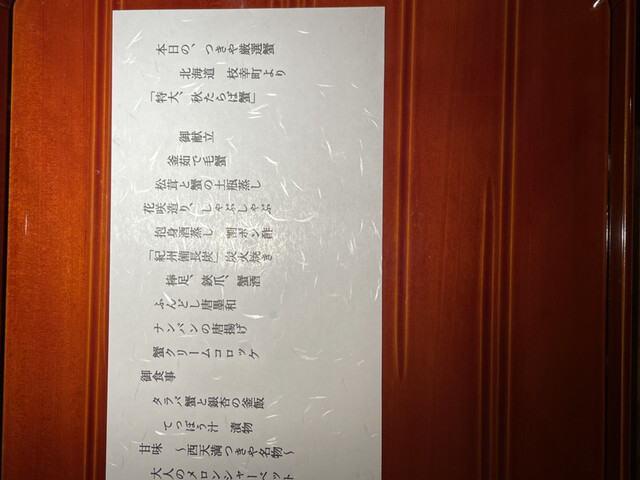 本日の、つきや厳選蟹
北海道 枝幸町より
「特大、秋たらば蟹」
御献立
釜茹で毛蟹
松茸と蟹の土瓶蒸し
花咲造り、しゃぶしゃぶ
抱身酒蒸し 割ポン酢
「紀州備長炭」炭火焼き
棒足、鋏爪、蟹酒
ふんどし唐墨和
ナンバンの唐揚げ
蟹クリームコロッケ
御食事
タラバ蟹と銀杏の釜飯
てっぽう汁 漬物
甘味 ~西天満つきや名物~
大人のメロンシャーベット